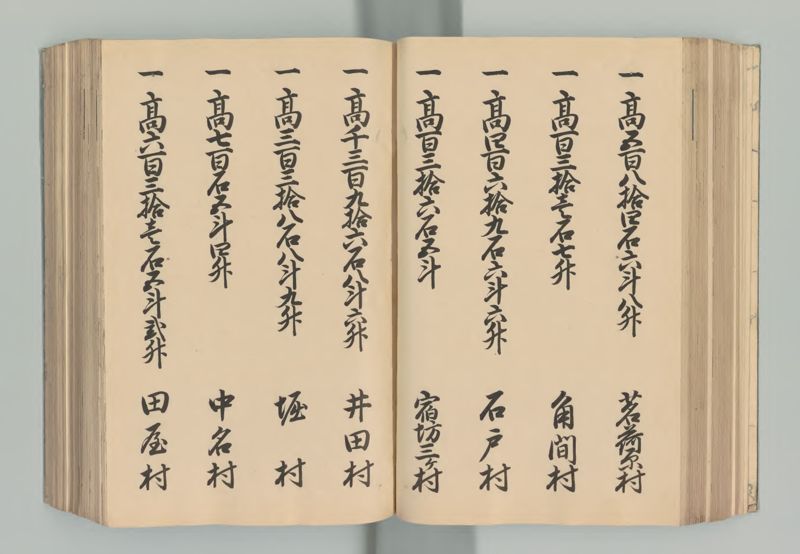 一 高五百八拾四石六斗八升 茗荷原村
一 高百三拾壱石七升 角間村
一 高四百六拾九石六斗六升 石戸村
一 高百三拾六石五斗 宿坊三ヶ村
一 高千三百九拾六石八斗六升 井田村
一 高三百三拾八石八斗九升 堀村
一 高七百石五斗四升 中名村
一 高六百三拾壱石五斗弐升 田屋村